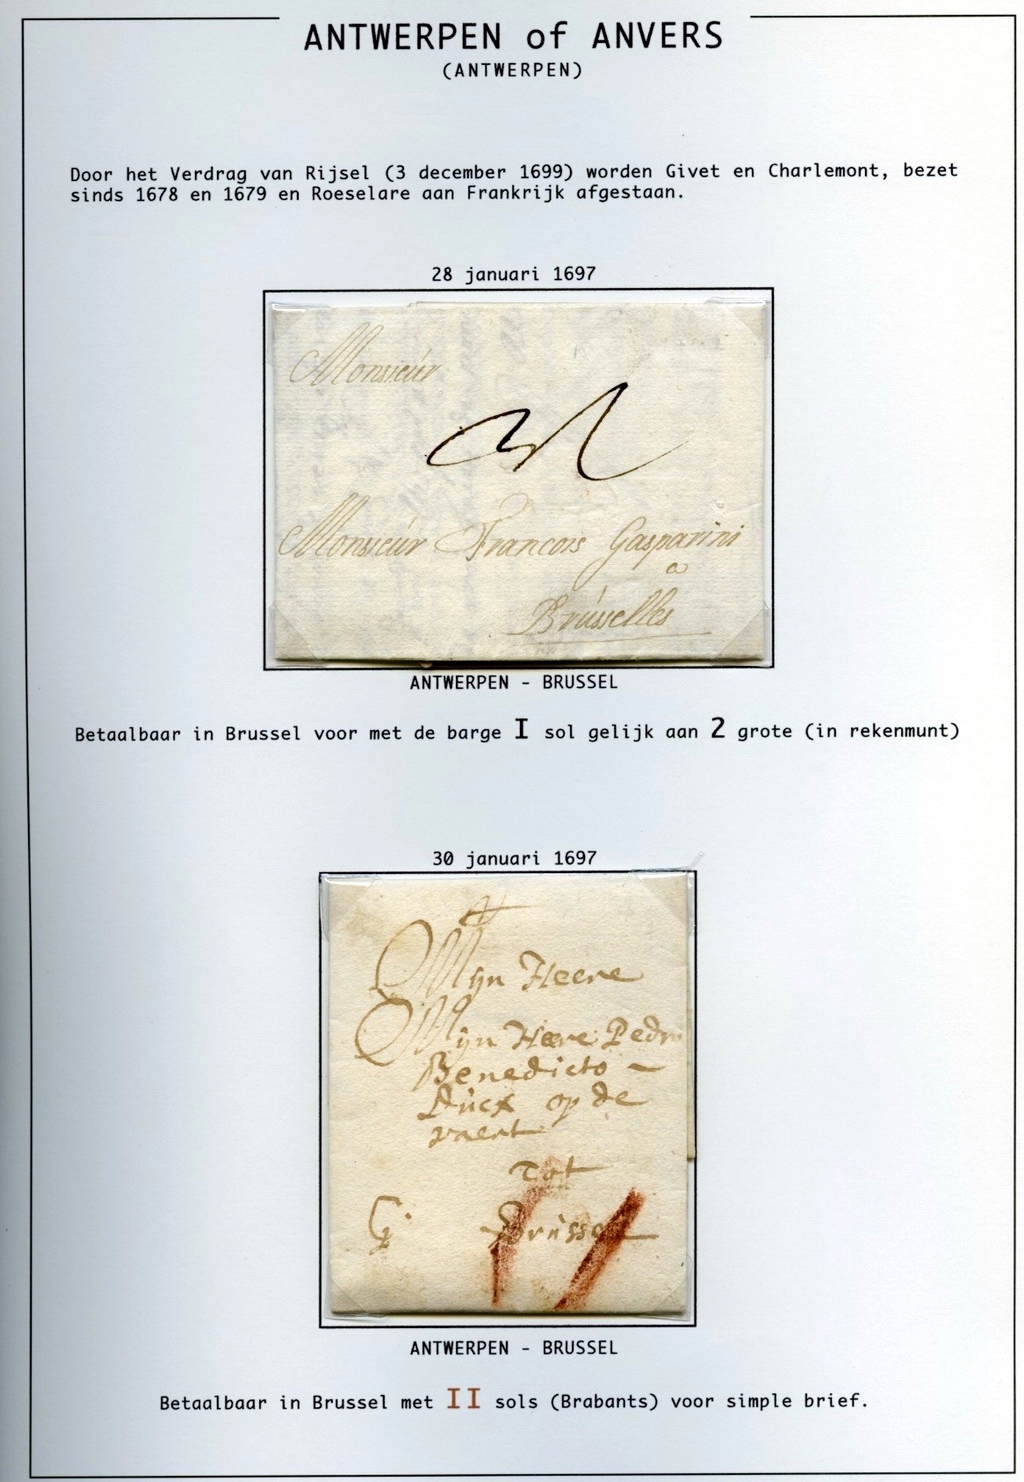 ANTWERPEN of ANVERS
(ANTWERPEN)
Door het Verdrag van Rijsel (3 december 1699) worden Givet en Charlemont, bezet
sinds 1678 en 1679 en Roeselare aan Frankrijk afgestaan.
28 januari 1697
Monsieúr
Monsieúr Francois Gasparini
a
Brússelles
ANTWERPEN - BRUSSEL
Betaalbaar in Brussel voor met de barge I sol gelijk aan 2 grote (in rekenmunt)
30 januari 1697
Mijn Heere
Mijn Heere Pedro
Benedicto
Dúcx op de
vaert
Tot
Brússel
ANTWERPEN - BRUSSEL
Betaalbaar in Brussel met II sols (Brabants) voor simple brief.